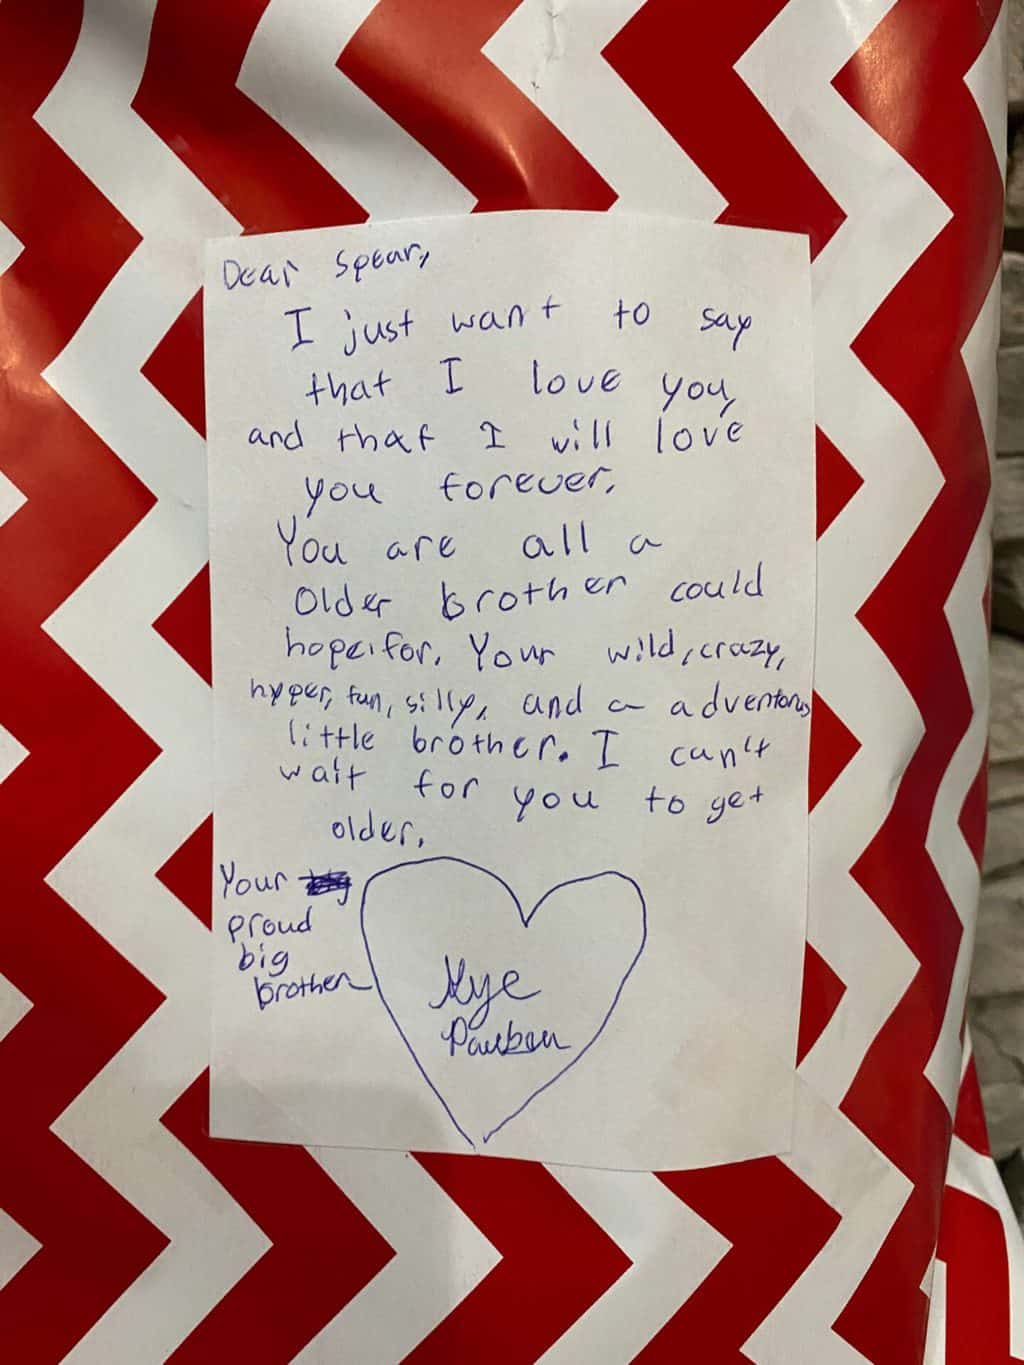 Dear Spear,
I just want to say
that I love you,
and that I will love
you forever.
You are all a
older brother could
hope for. Your wild, crazy,
hyper, fun, silly, and a adventorus
little brother. I can't
wait for you to get
older.
Your
proud
big
brother